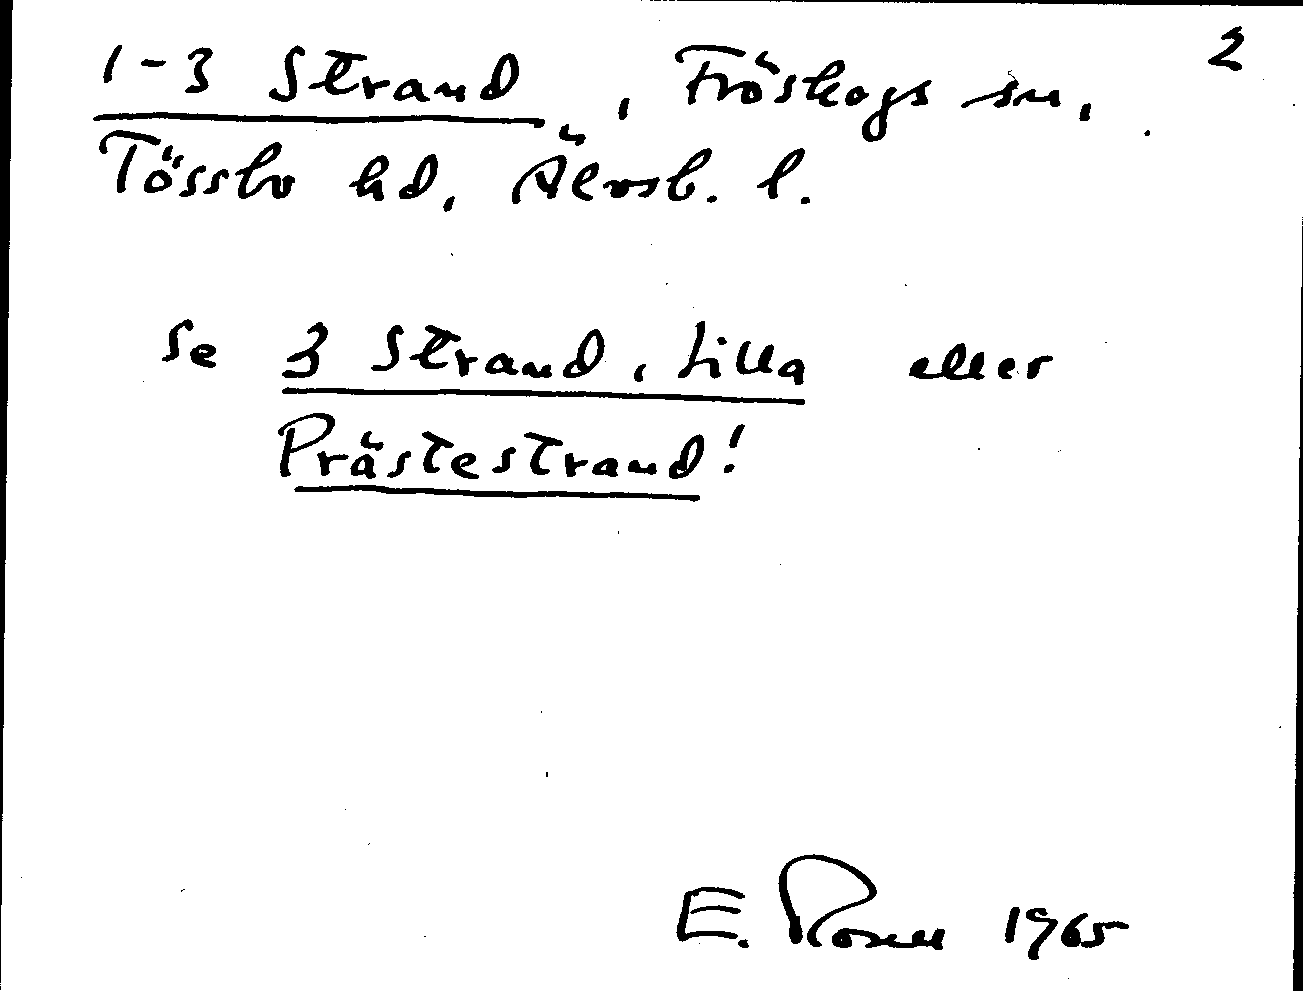 2
1-3 Strand, Fröskogs sn,
Tössbo hd, Älvsb. l.
Se 3 Strand, Lilla eller
Prästestrand!
E. Rosell 1965